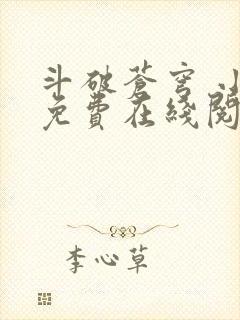 斗破苍穹小
免費在綫閱
李心草